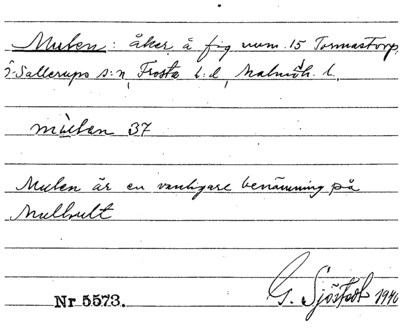 Mulen: åker å fig num. 15 Tormastorp,
Ö. Sallerups s:n, Frosta h:d, Malmöh. l.
mùlen 37
Mulen är en vanligare benämning på
Mulhult
Nr 5573. G. Sjöstedt 1940